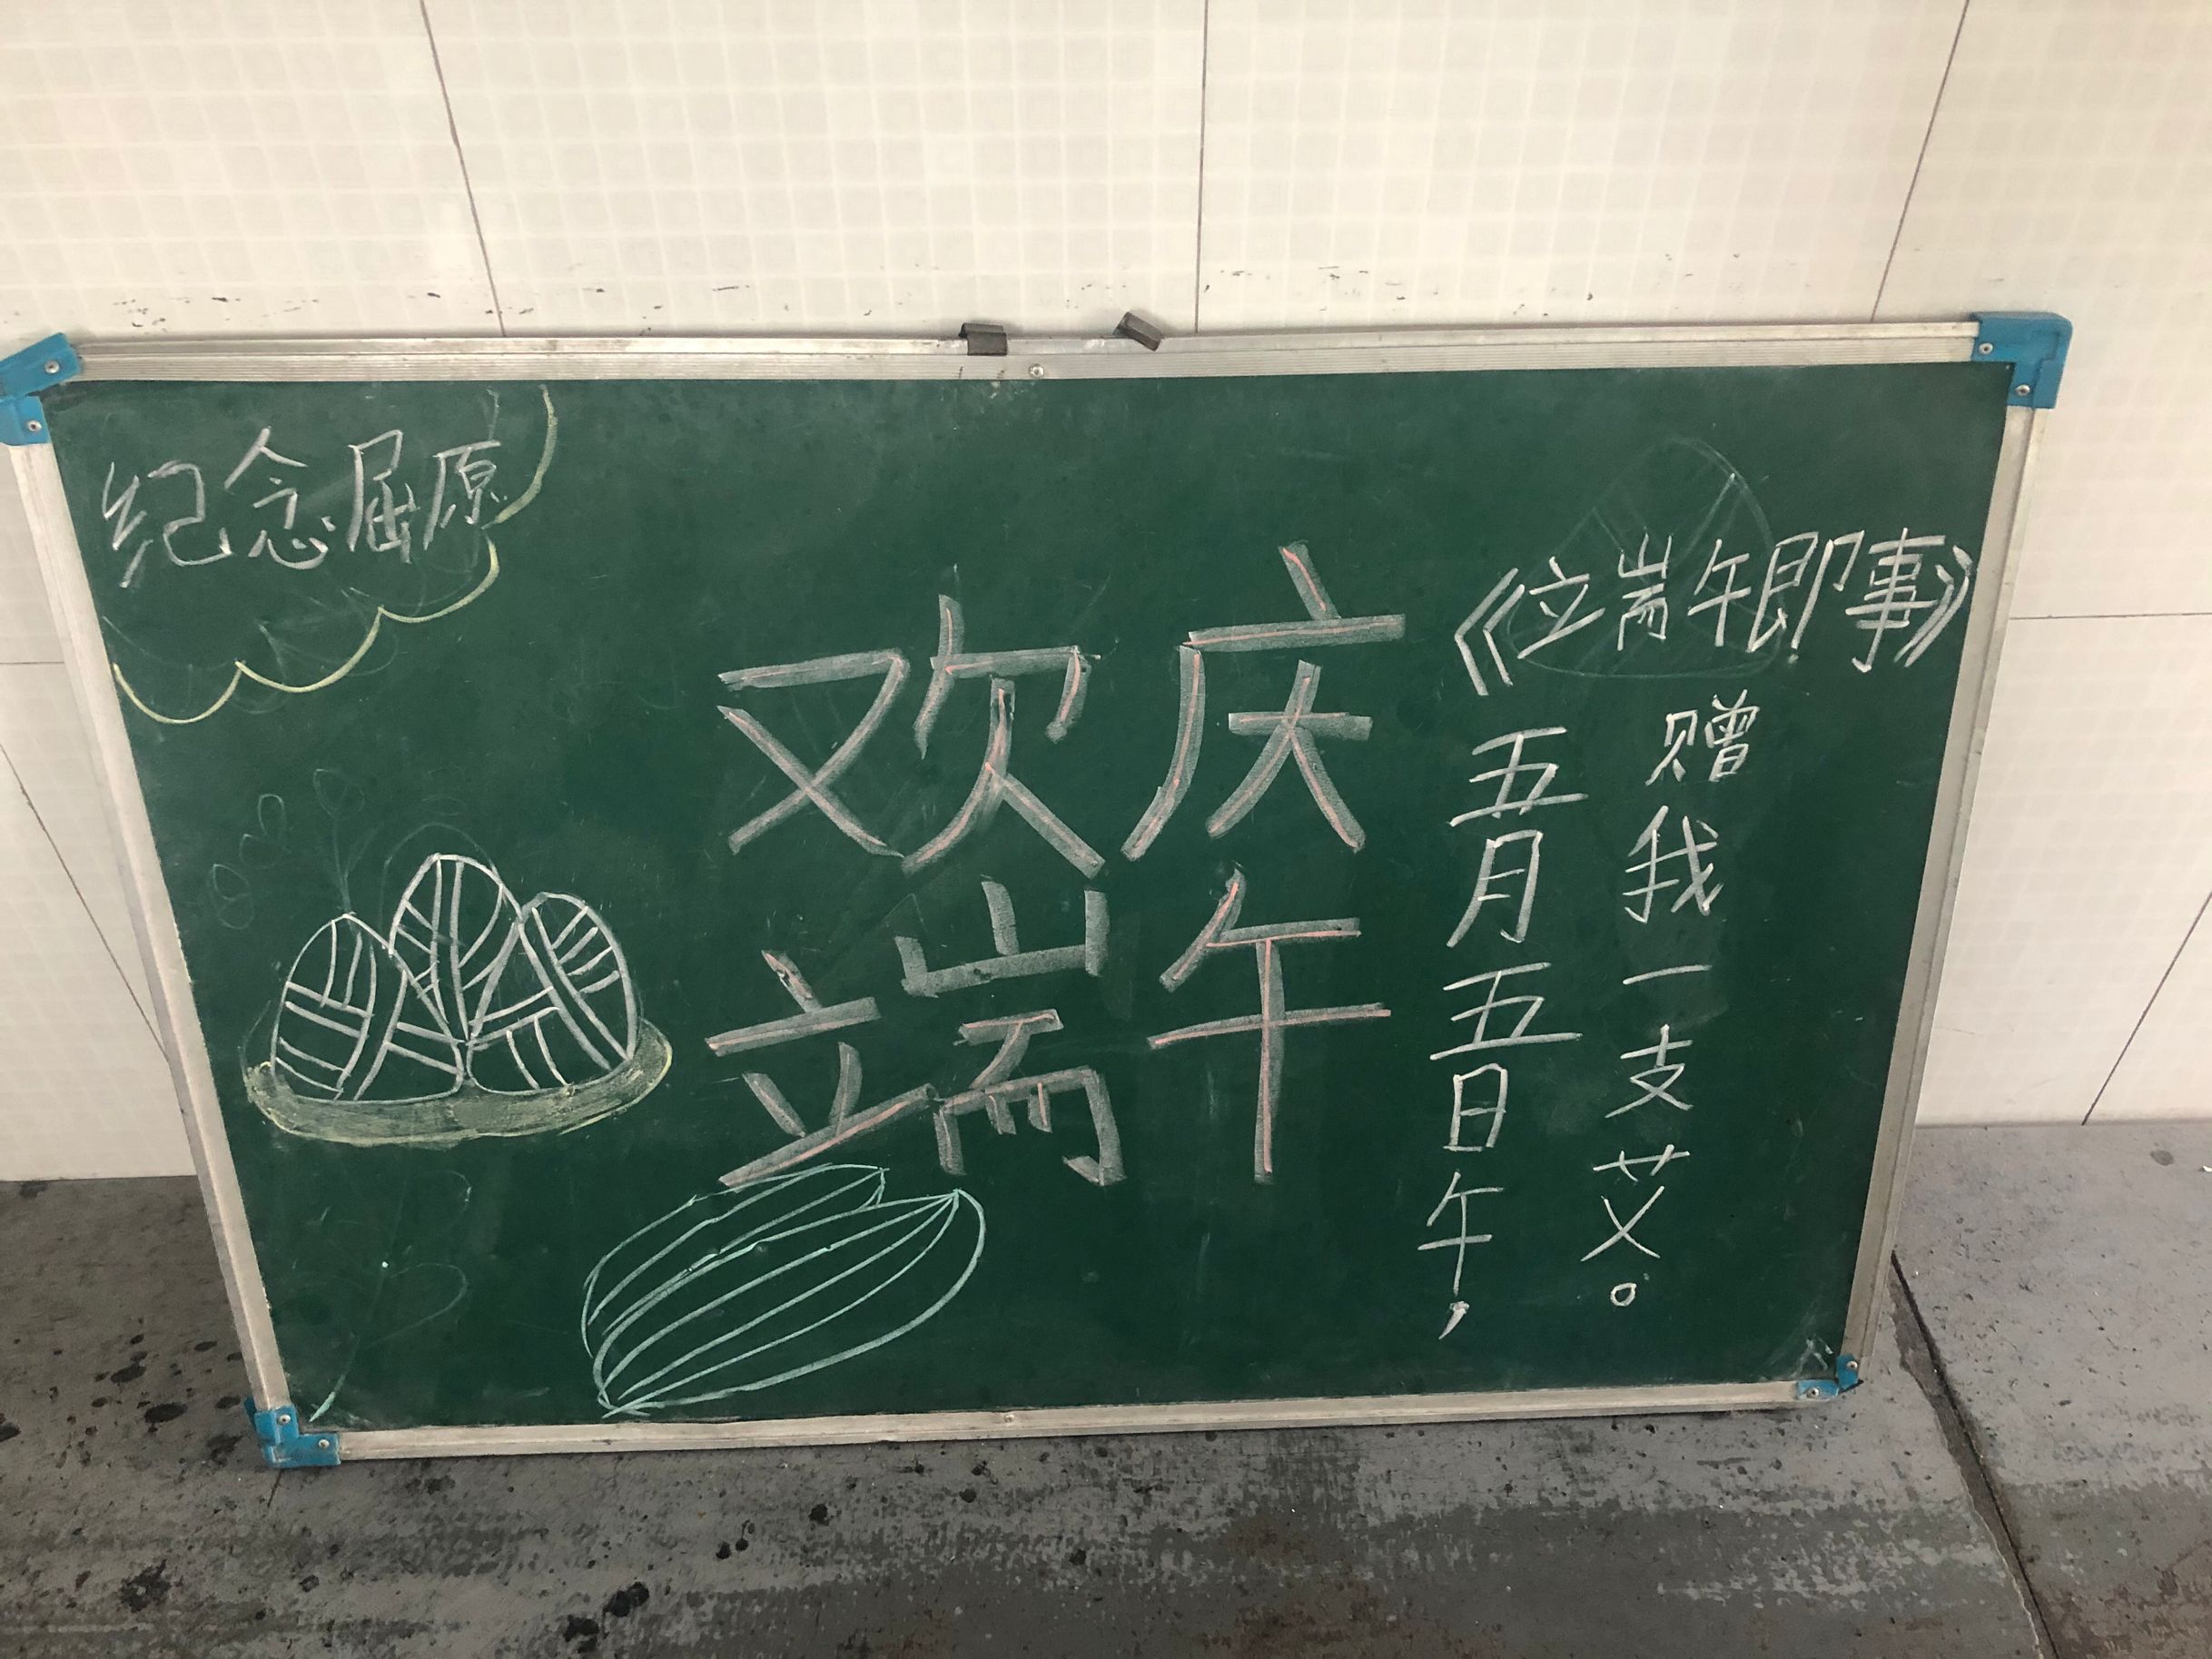 纪念屈原
欢庆
端午
《端午即事》
五月五日午，
赠我一支艾。